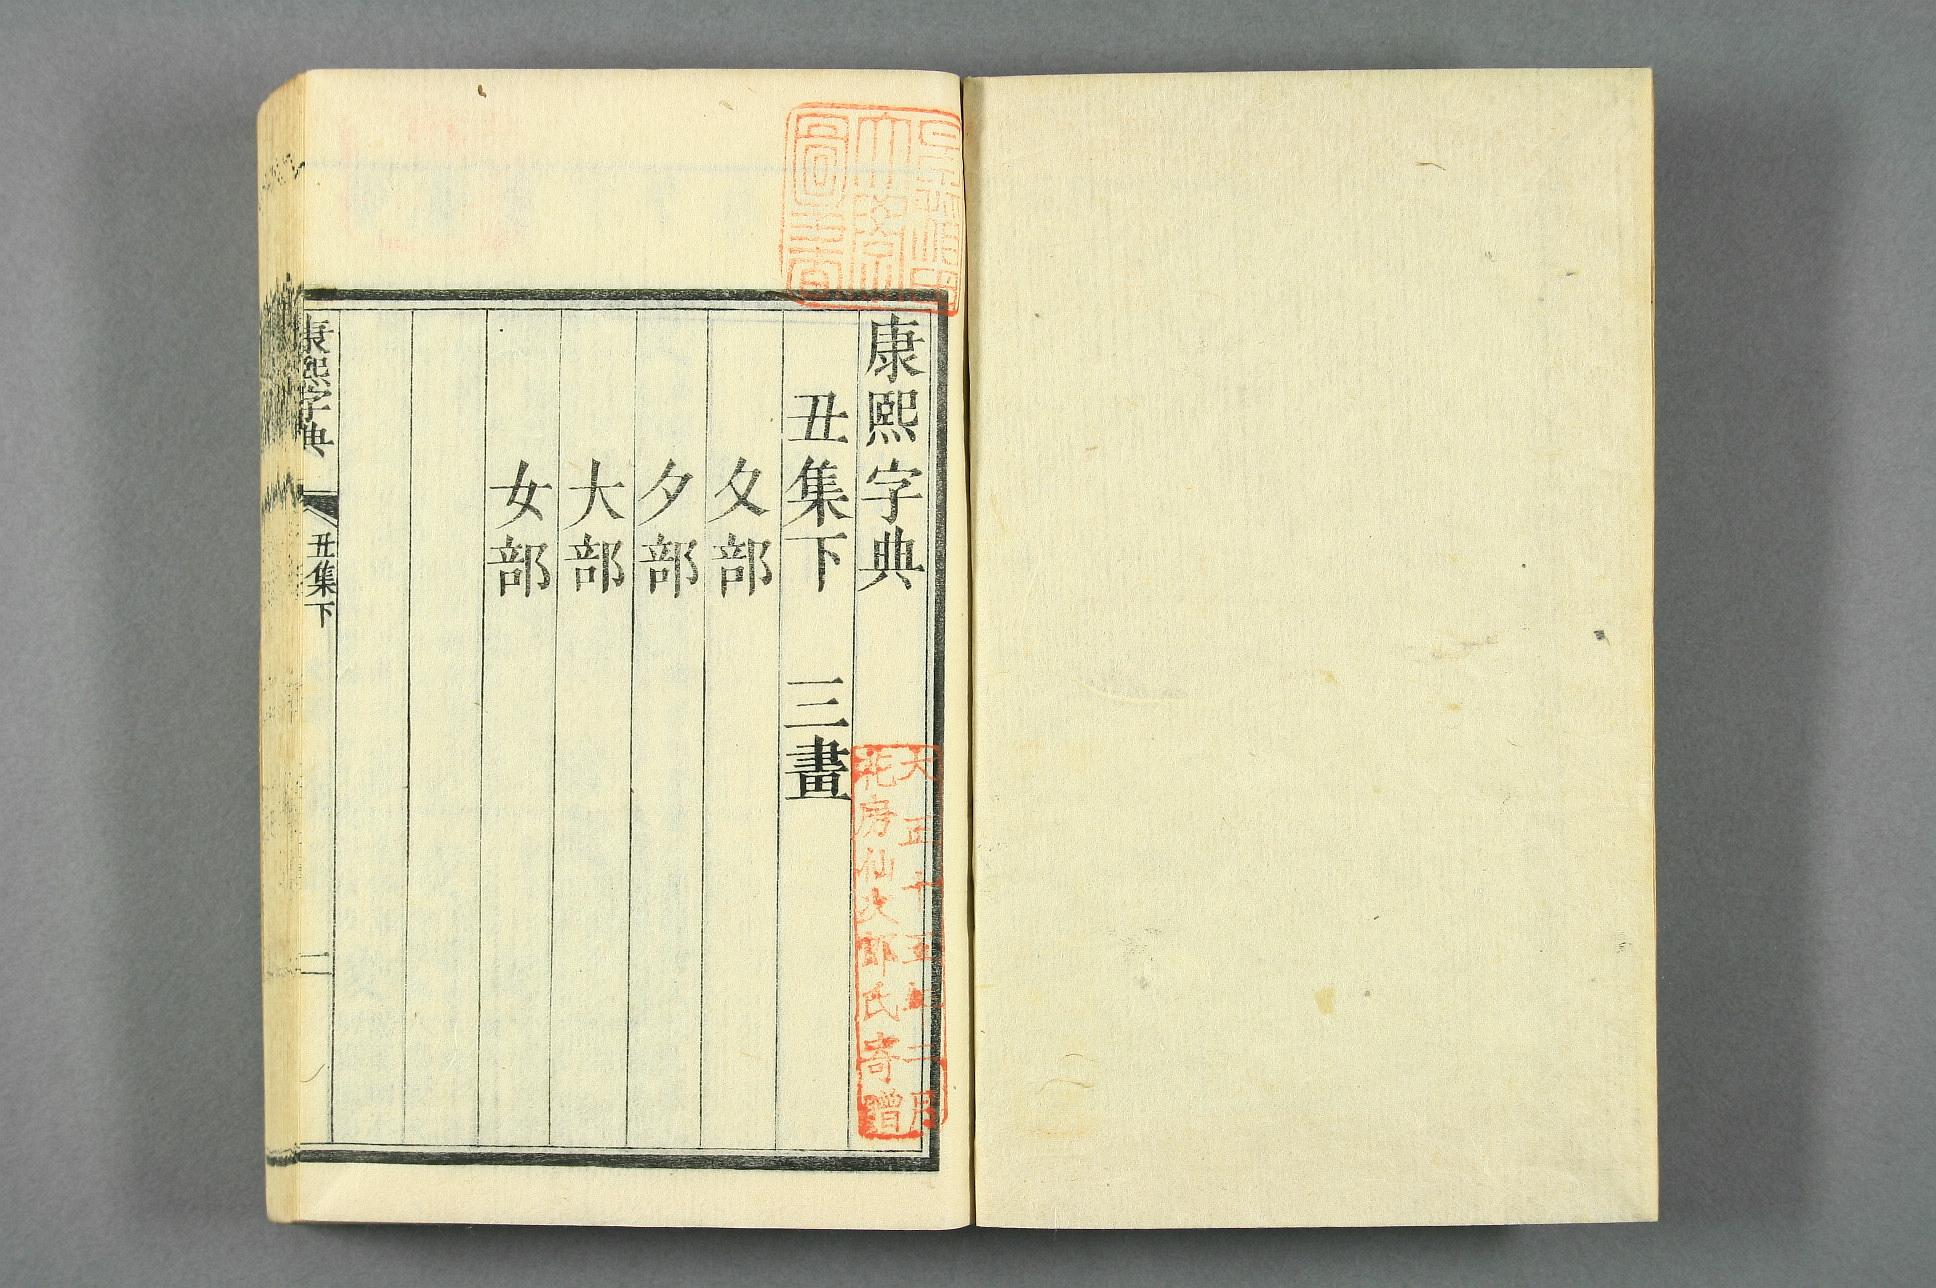 早稲田
大學
圖書
康熙字典
丑集下　三畫
夊部
夕部
大部
女部
大正十五年二月
花房仙次郎氏寄贈
康熙字典　丑集下　二